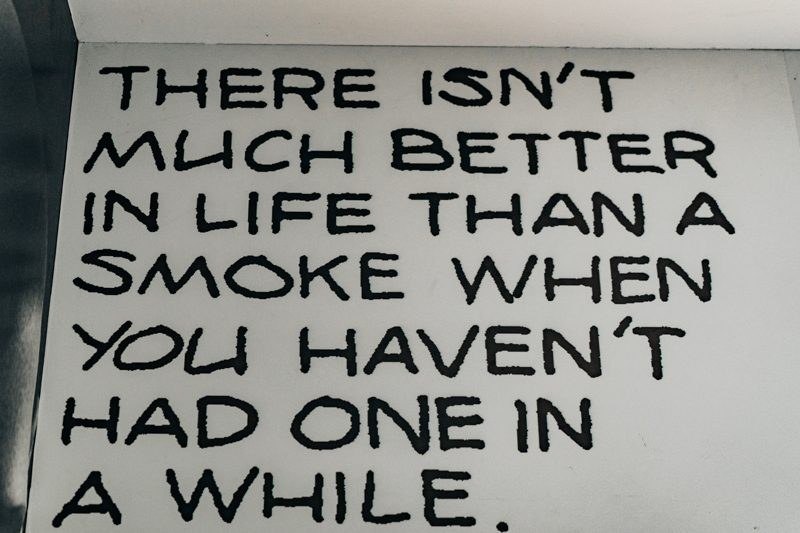 THERE ISN'T
MUCH BETTER
IN LIFE THAN A
SMOKE WHEN
YOU HAVEN'T
HAD ONE IN
A WHILE.